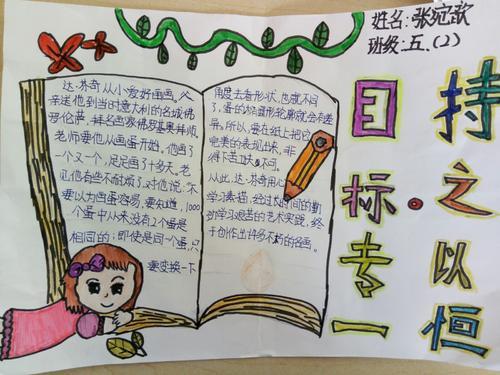 姓名:张宛歆
班级:五.(2)
持之以恒
目标专一
达·芬奇从小爱好画画。父
亲送他到当时意大利的名城佛
罗伦萨,拜名画家佛罗基奥为师。
老师要他从画蛋开始。他画了
一个又一个,足足画了十多天。老
师见他有些不耐烦了,对他说:“不
要以为画蛋容易,要知道,1000
个蛋中从来没有2个蛋是
相同的;即使是同一个蛋,只
要变换一下
角度去看形状,也就不同
了,蛋的椭圆形轮廓就会有差
异。所以,要在纸上把它
完美的表现出来,非
得下苦功夫不可。
从此,达·芬奇用心
学习素描,经过长时间的勤
奋学习艰苦的艺术实践,终
于创作出许多不朽的名画。